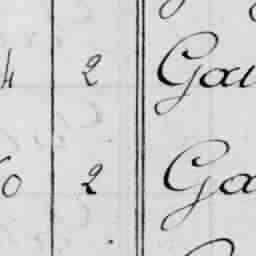 4 2 Gau
0 2 Ga